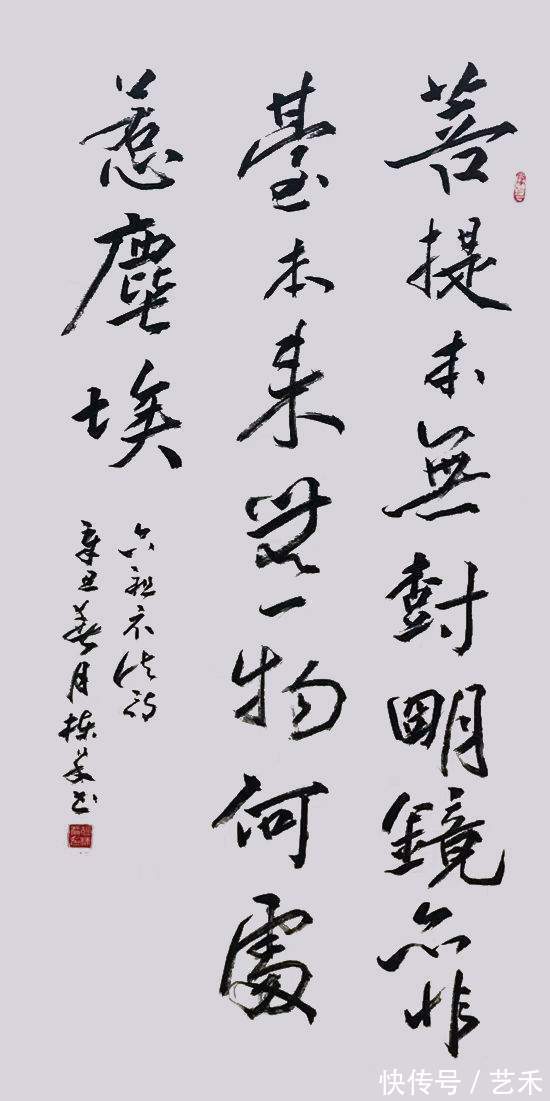 菩提本無樹明鏡亦非
臺本來無一物何處
惹塵埃
六祖示法詩
辛丑春月棟书
快传号 / 艺禾